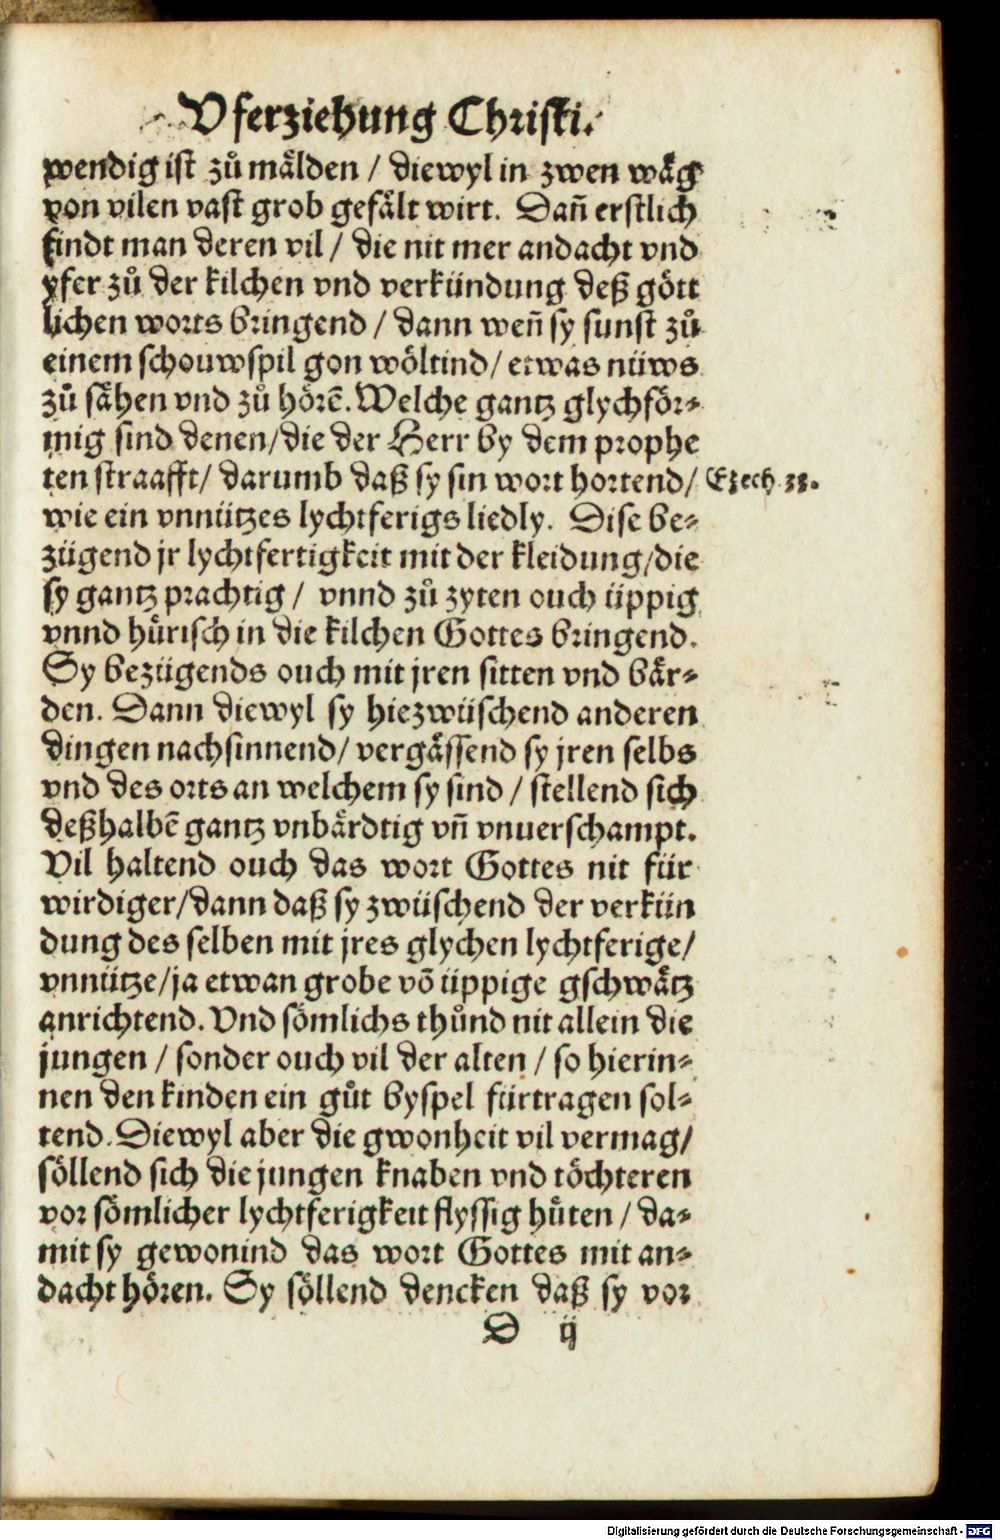 Vferziehung Christi.
wendig ist zů mälden / diewyl in zwen wäg
von vilen vast grob gefält wirt. Dañ erstlich
findt man deren vil / die nit mer andacht vnd
yfer zů der kilchen vnd verkündung deß gött
lichen worts bringend / dann weñ sy sunst zů
einem schouwspil gon wöltind / etwas nüws
zů sähen vnd zů hörē. Welche gantz glychför⸗
mig sind denen / die der Herr by dem prophe
ten straafft / darumb daß sy sin wort hortend / Ezech. 33.
wie ein vnnützes lychtferigs liedly. Dise be⸗
zügend jr lychtfertigkeit mit der kleidung / die
sy gantz prachtig / vnnd zů zyten ouch üppig
vnnd hůrisch in die kilchen Gottes bringend.
Sy bezügends ouch mit jren sitten vnd bär⸗
den. Dann diewyl sy hiezwüschend anderen
dingen nachsinnend / vergässend sy jren selbs
vnd des orts an welchem sy sind / stellend sich
deßhalbē gantz vnbärdtig vñ vnuerschampt.
Vil haltend ouch das wort Gottes nit für
wirdiger / dann daß sy zwüschend der verkün
dung des selben mit jres glychen lychtferige /
vnnütze / ja etwan grobe vō üppige gschwätz
anrichtend. Vnd sömlichs thůnd nit allein die
jungen / sonder ouch vil der alten / so hierin⸗
nen den kinden ein gůt byspel fürtragen sol⸗
tend. Diewyl aber die gwonheit vil vermag /
söllend sich die jungen knaben vnd töchteren
vor sömlicher lychtferigkeit flyssig hůten / da⸗
mit sy gewonind das wort Gottes mit an⸗
dacht hören. Sy söllend dencken daß sy vor
D ij
Digitalisierung gefördert durch die Deutsche Forschungsgemeinschaft - DFG